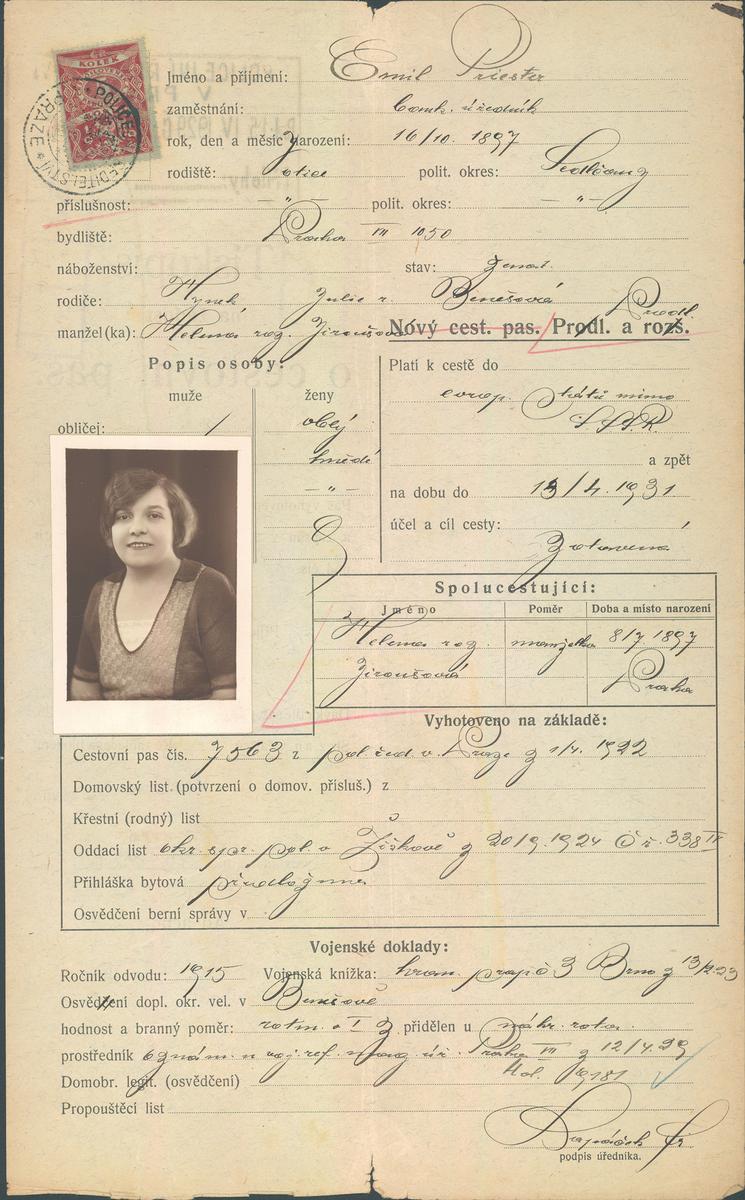 KOLEK
POLICEJNÍ ŘEDITELSTVÍ PRAZE
Jméno a příjmení: Emil Priester
zaměstnání: úředník
rok, den a měsíc narození: 16/10. 1897
rodiště: polit. okres: Sedlčany
příslušnost: – „ – polit. okres: – „ –
bydliště: Praha VII 1050
náboženství: stav: ženat.
rodiče: Hynek Julie r. Benešová
manžel(ka): Helena roz. Jiroušová
Prodl.
Nový cest. pas. Prodl. a rozš.
Popis osoby:
muže ženy
obličej: / oblý
hnědé
– „ –
Platí k cestě do
evrop. států mimo
SSSR
a zpět
na dobu do 13/4. 1931
účel a cíl cesty:
Zotavená
Spolucestující:
Jméno Poměr Doba a místo narození
Helena roz. manželka 8/7 1897
Jiroušová Praha
Vyhotoveno na základě:
Cestovní pas čís. 7563 z pol. řed. v Praze z 1/4. 1922
Domovský list (potvrzení o domov. přísluš.) z
Křestní (rodný) list
Oddací list okr. spr. pol. v Žižkově z 20/9. 1924 č. ř. 338 II
Přihláška bytová předložena
Osvědčení berní správy v
Vojenské doklady:
Ročník odvodu: 1915 Vojenská knížka: prap č 3 Brno z 13/2.23
Osvědčení dopl. okr. vel. v Benešově
hodnost a branný poměr: rotm. přidělen u náhr. rota.
prostředník oznám. n voj. ref. mag. úř. Praha VII z 12/4. 29
Domobr. legit. (osvědčení) 19181
Propouštěcí list
podpis úředníka.